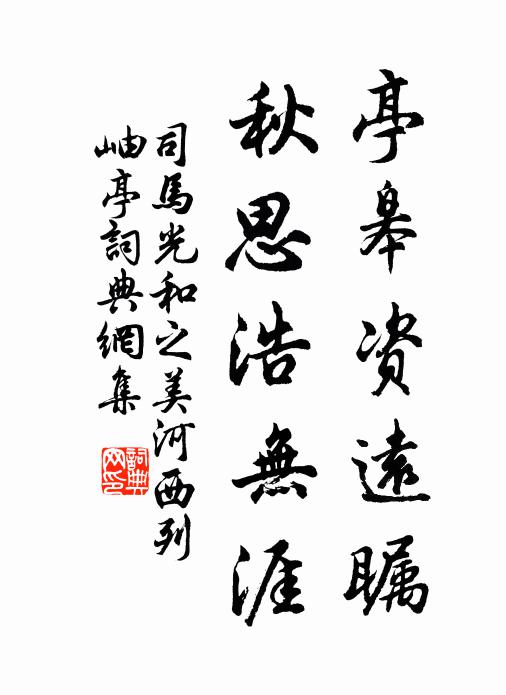 亭皋資遠矚
秋思浩無涯
司馬光和之美河西列
岫亭詞典網集
詞典网印